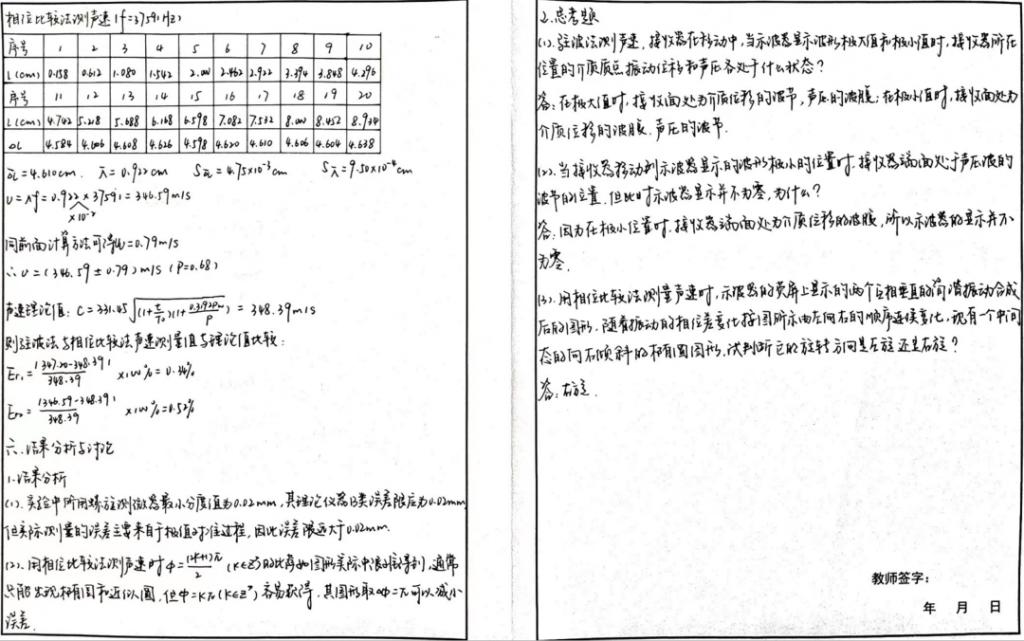 相位比较法测声速 (f=37591Hz)
序号 1 2 3 4 5 6 7 8 9 10
L(cm) 0.158 0.612 1.080 1.542 2.000 2.462 2.922 3.394 3.848 4.296
序号 11 12 13 14 15 16 17 18 19 20
L(cm) 4.742 5.218 5.688 6.168 6.598 7.082 7.532 8.000 8.452 8.934
ΔL 4.584 4.606 4.608 4.626 4.598 4.620 4.610 4.606 4.604 4.638
4.610cm. λ̄=0.922cm 4.75×10⁻³cm 9.50×10⁻⁴cm
υ=λf=0.922×37591=346.59m/s
×10⁻²
同前面计算方法可得 =0.79m/s
∴υ=(346.59±0.79)m/s (P=0.68)
声速理论值: C=331.45√(1+t/T₀)(1+0.3192Pw/P) = 348.39m/s
则驻波法与相位比较法声速测量值与理论值比较:
Er₁=|347.20-348.39|/348.39 ×100%=0.34%
Er₂=|346.59-348.39|/348.39 ×100%=0.52%
六.结果分析与讨论
1.结果分析
(1).实验中所用螺旋测微器最小分度值为0.02mm,其理论仪器B类误差限应为0.02mm
但实际测量的误差主要来自于极值对准过程,因此误差限远大于0.02mm.
(2).用相位比较法测声速时φ=(2k+1)π/2 (k∈Z)的 图形实际中很难得到,通常
只能出现椭圆和近似圆,但φ=kπ(k∈Z)容易获得,其图形取Δφ=π可以减小
误差.
2.思考题
(1).驻波法测声速,接收器在移动中,当示波器显示波形极大值和极小值时,接收器所在
位置的介质质点振动位移和声压各处于什么状态?
答:在极大值时,接收面处为介质位移的波节,声压的波腹;在极小值时,接收面处为
介质位移的波腹.声压的波节.
(2).当接收器移动到示波器显示的波形极小的位置时.接收器端面处于声压波的
波节的位置.但此时示波器显示并不为零,为什么?
答:因为在极小位置时.接收器端面处为介质位移的波腹,所以示波器的显示并不
为零.
(3).用相位比较法测量声速时,示波器的荧屏上显示的两个互相垂直的简谐振动合成
后的图形.随着振动的相位差变化按图所示由左向右的顺序连续变化,现有一个中间
态的向右倾斜的椭圆图形,试判断它的旋转方向是左旋还是右旋?
答:右旋.
教师签字:
年 月 日